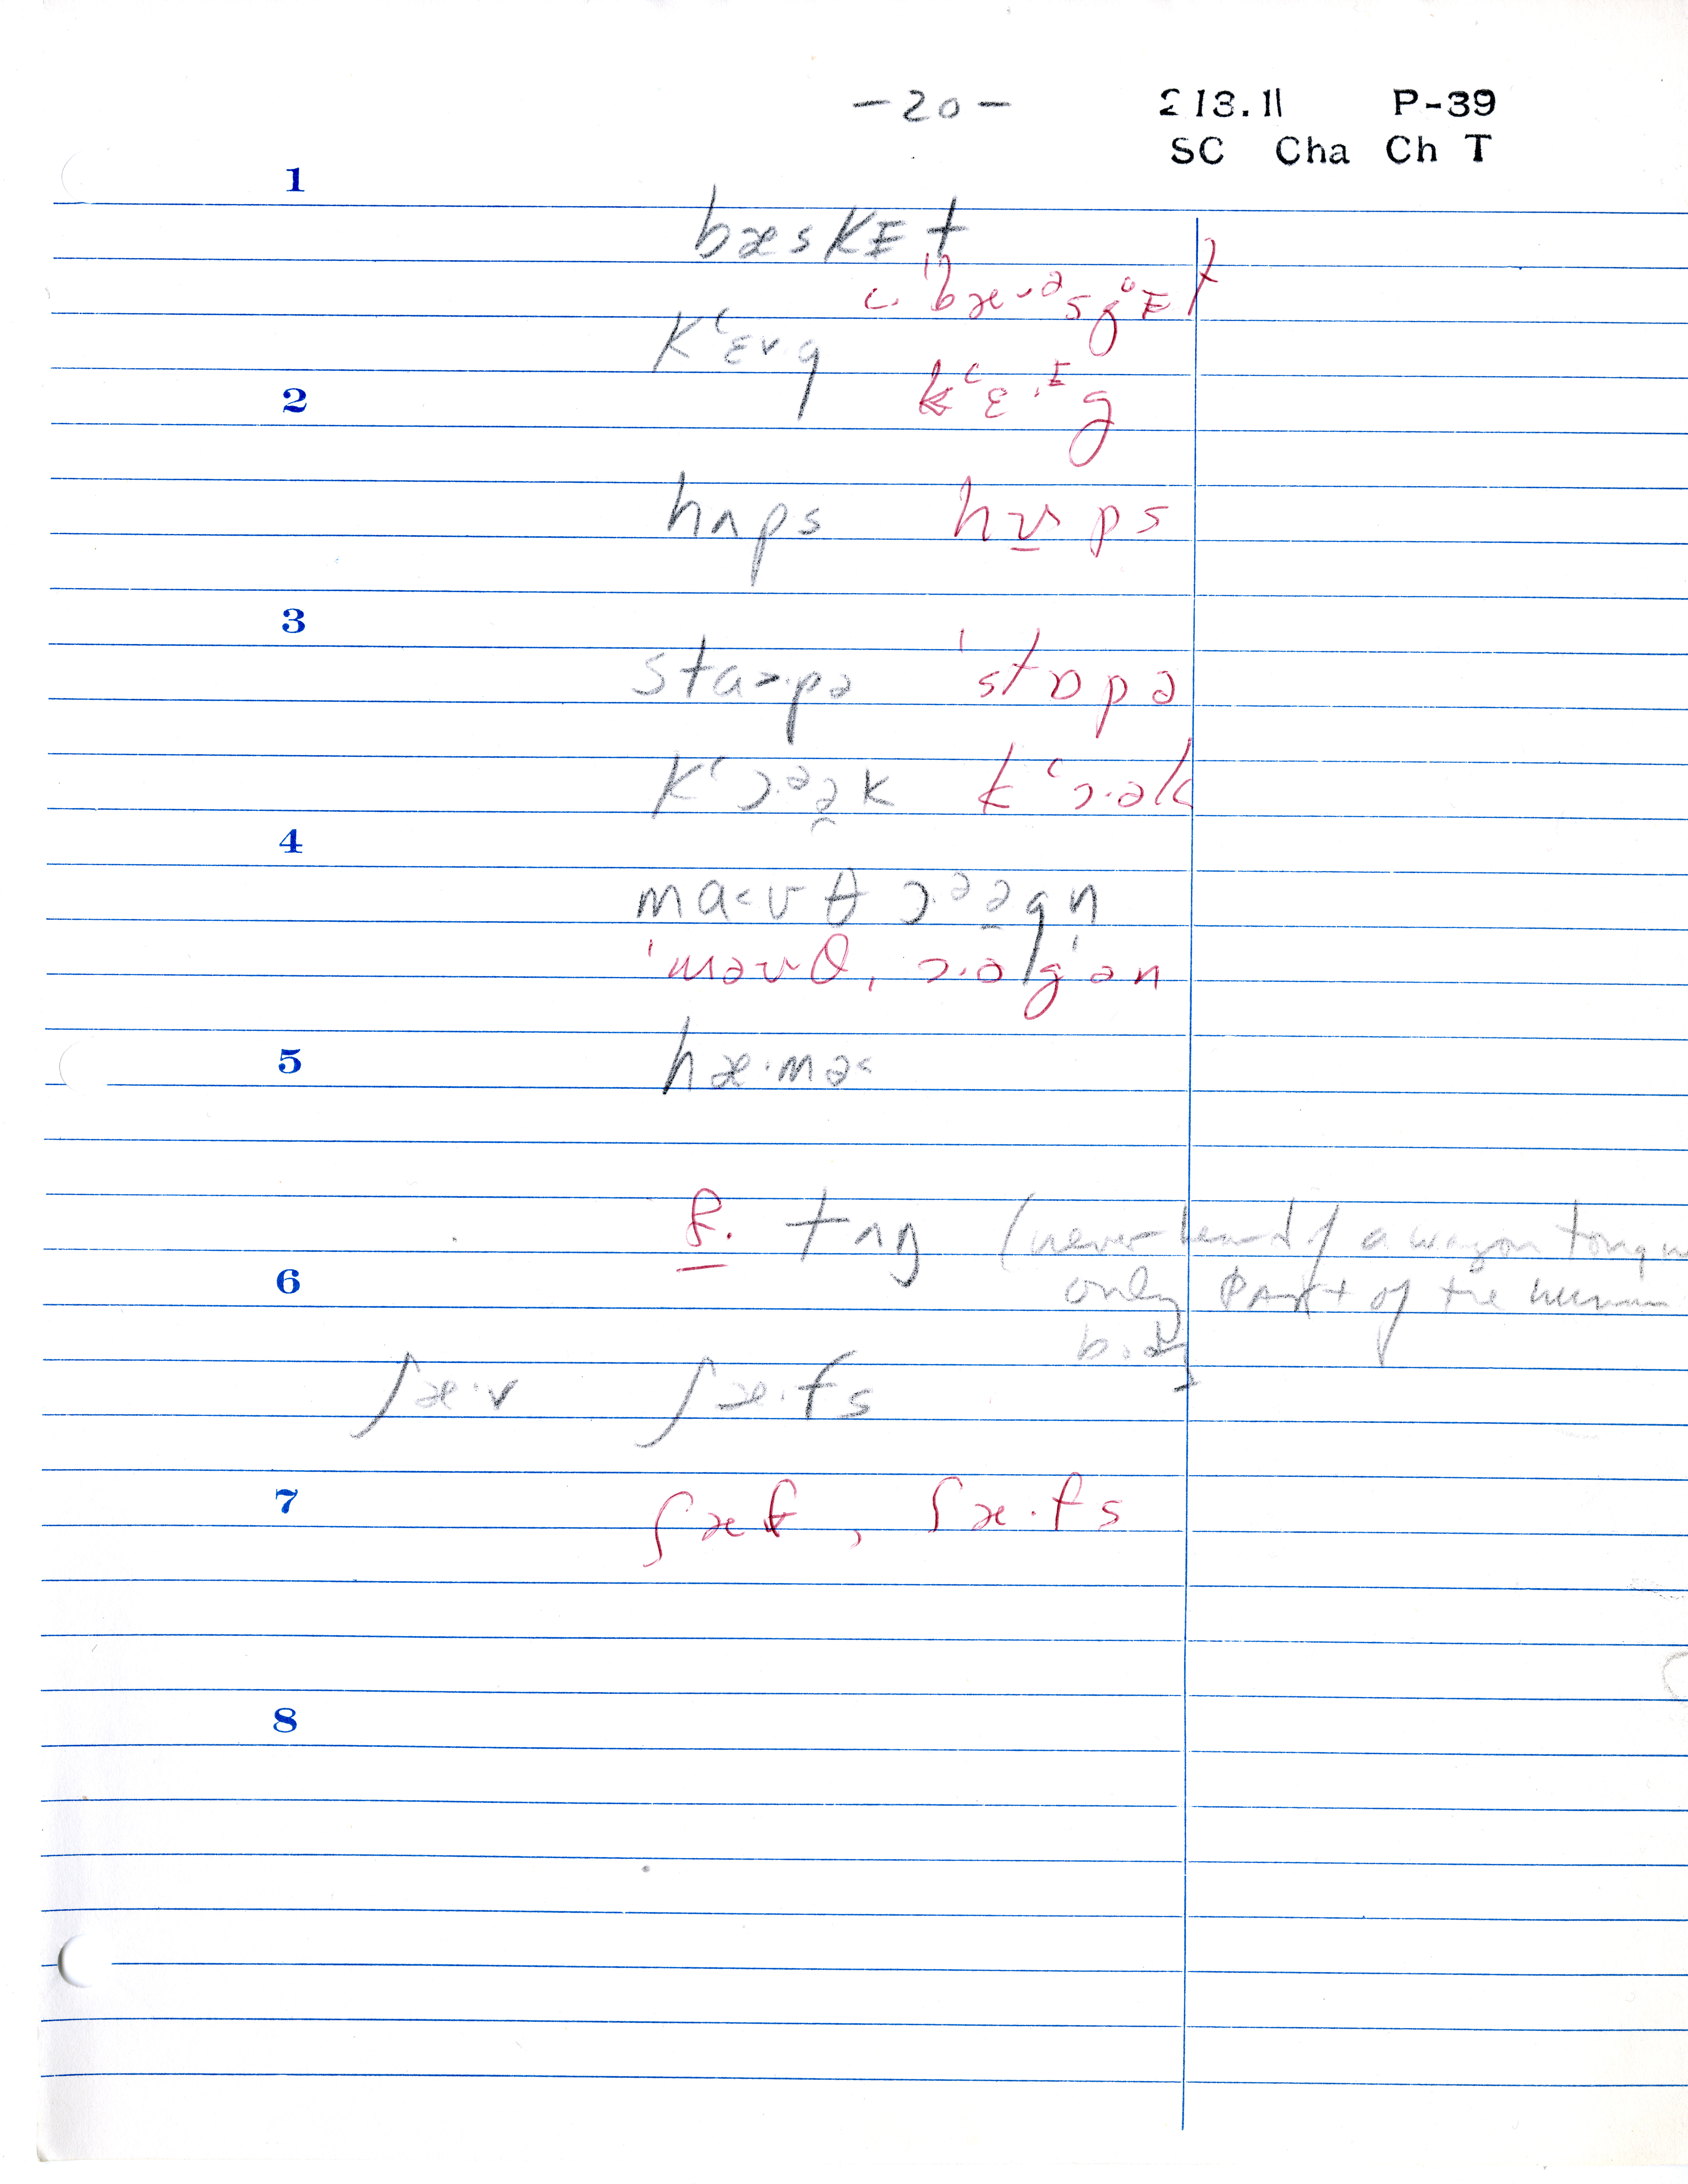 -20- 213.11 P-39
SC Cha Ch T
1
bæskɪt
c. 'bæ˅ᵊsg̊ɪt
kʻɛ˅·g
2
kʻɛ·ᶦg
hʌps hʌps
3
sta>·pə 'stɒpə
kʻɔ·ᵊə̯k kʻɔ·ək
4
ma<ʊθ ɔ·ᵊə̯gn
'maʊθ, ɔ·əg'ən
5
hæ·mə<
f. tʌŋ (never heard of a wagon tongue
6
only part of the human
body
ʃæ·v ʃæ·fs
7
ʃæf, ʃæ·fs
8